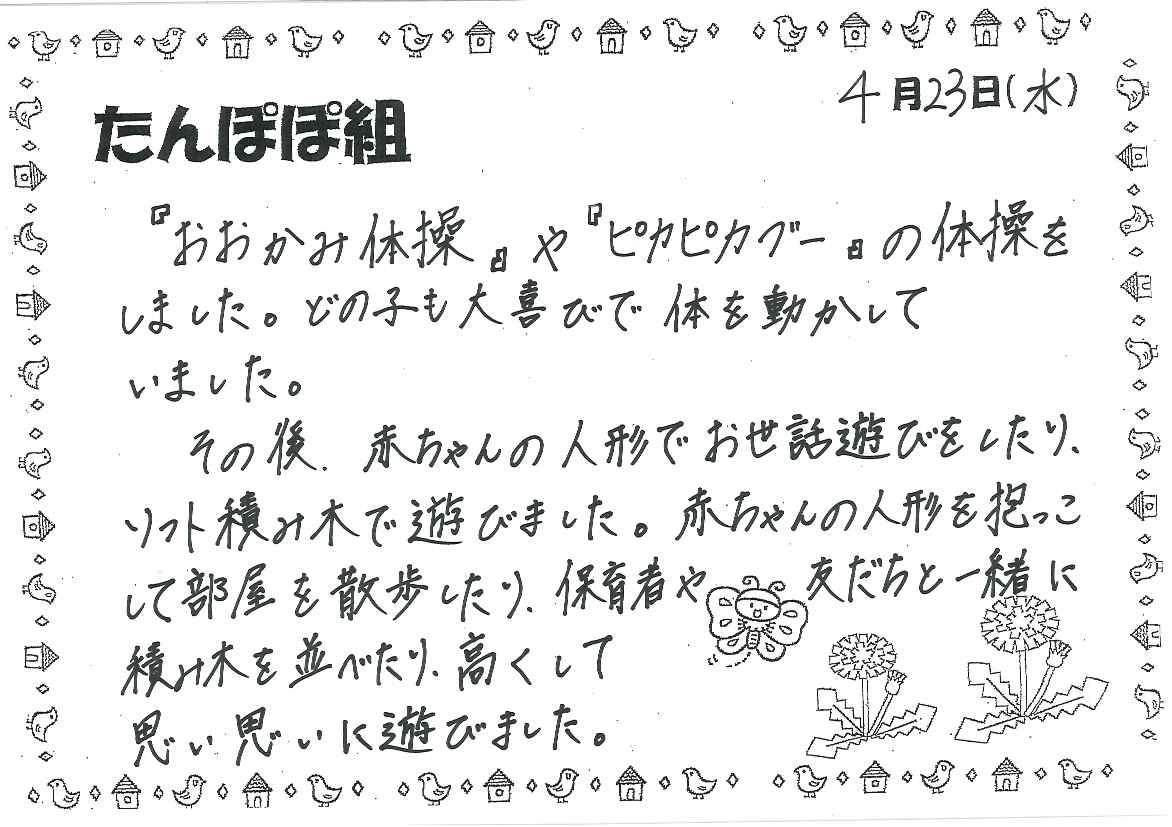 4月23日(水)
たんぽぽ組
『おおかみ体操』や『ピカピカブー』の体操を
しました。どの子も大喜びで体を動かして
いました。
その後、赤ちゃんの人形でお世話遊びをしたり、
ソフト積み木で遊びました。赤ちゃんの人形を抱っこ
して部屋を散歩したり、保育者や友だちと一緒に
積み木を並べたり、高くして
思い思いに遊びました。